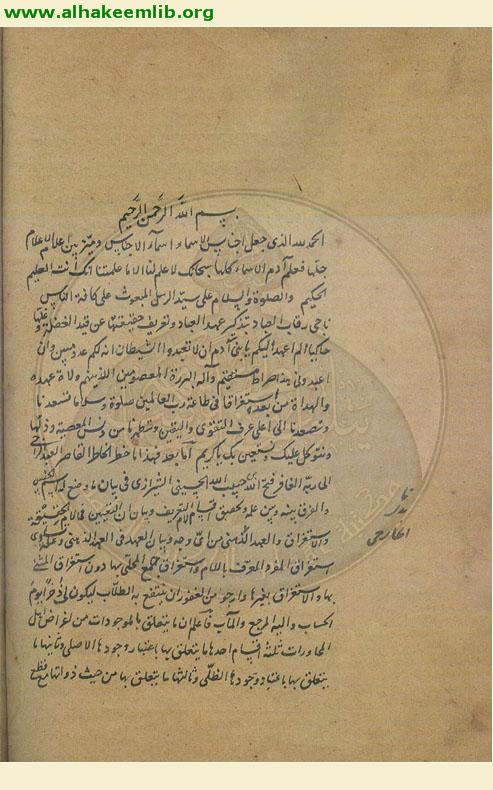 www.alhakeemlib.org
بسم الله الرحمن الرحيم
الحمد لله الذي جعل اجناس الاسماء اسماء الاجناس وميّز بين اعلام الاعلام
جلها فعلم آدم الاسماء كلها سبحانك لا علم لنا الا ما علمتنا انك انت العليم
الحكيم والصلوة والسلام على سيد الرسل المبعوث على كافة الناس
رقاب العباد بتذكر عهد العباد وتعريف حقيقتها عن قيد الغفلة
حاكيا الم اعهد اليكم يا بني آدم ان لا تعبدوا الشيطان انه لكم عدو مبين وان
اعبدوني هذا صراط مستقيم وآله البررة المعصومين الذينهم ولاة عهده
والهداة من بعده استغراقا في طاعة رب العالمين صلوة وسلاما تسعدنا
وتصعدنا الى اعلى غرف التقوى واليقين وتطهرنا من دنس المعصية وذلها
ونتوكل عليك ونستعين بك يا كريم اما بعد فهذا ما خط الخاطر القاصر للعبد الراجي
الى ربه الغافر فتح الله حبيب الله الحسيني الشيرازي في بيان ما وضع له اسم الجنس
والفرق بينه وبين علمه وتحقيق اقسام لام التعريف وبيان ان التعيين في لام الحقيقة
والاستغراق والعهد الذهني من اي وجه وبيان العهد في العهد الذهني وعلة تساوي
استغراق المفرد المعرف باللام واستغراق جمع المحلى بها دون استغراق المثنى
بها والاستغراق بغيرها وارجو من الغفور ان ينتفع به الطلاب ليكون لي ذخرا يوم
الحساب واليه المرجع والمآب فاعلم ان ما يتعلق بالموجودات من اغراض اهل
المحاورات ثلثة اقسام احدها ما يتعلق بها باعتبار وجودها الاصلي وثانيها ما
يتعلق بها باعتبار وجودها الظلي وثالثها ما يتعلق بها من حيث ذواتها مع قطع
الخارجي